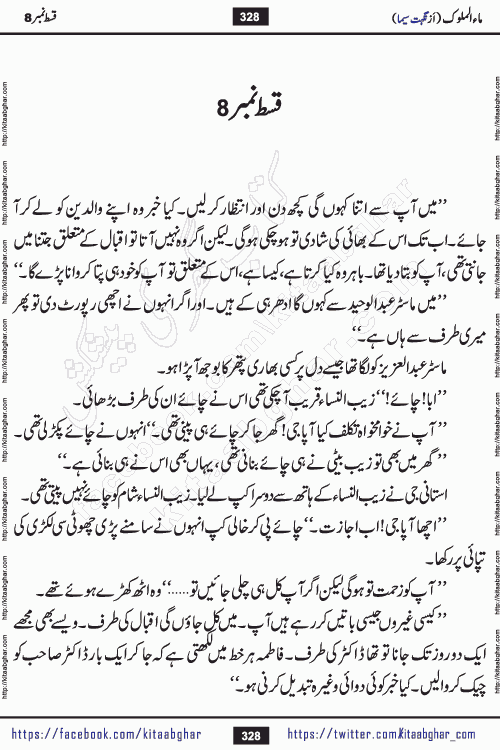 ماء الملوک (از نگہت سیما) 328 قسط نمبر 8
قسط نمبر 8
’’میں آپ سے اتنا کہوں گی کچھ دن اور انتظار کرلیں۔ کیا خبر وہ اپنے والدین کو لے کر آ
جائے۔ اب تک اس کے بھائی کی شادی تو ہوچکی ہوگی۔ لیکن اگر وہ نہیں آتا تو اقبال کے متعلق جتنا میں
جانتی تھی، آپ کو بتا دیا تھا۔ باہر وہ کیا کرتا ہے، کیسا ہے، اس کے متعلق تو آپ کو خود ہی پتا کروانا پڑے گا۔‘‘
’’میں ماسٹر عبدالوحید سے کہوں گا ادھر ہی کے ہیں۔ اور اگر انہوں نے اچھی رپورٹ دی تو پھر
میری طرف سے ہاں ہے۔‘‘
ماسٹر عبدالعزیز کو لگا تھا جیسے دل پر کسی بھاری پتھر کا بوجھ آپڑا ہو۔
’’ابا! چائے!‘‘ زیب النساء قریب آچکی تھی اس نے چائے ان کی طرف بڑھائی۔
’’آپ نے خوامخواہ تکلف کیا آپا جی! گھر جا کر چائے ہی پینی تھی۔‘‘ انہوں نے چائے پکڑ لی تھی۔
’’گھر میں بھی تو زیب بیٹی نے ہی چائے بنانی تھی، یہاں بھی اس نے ہی بنائی ہے۔‘‘
استانی جی نے زیب النساء کے ہاتھ سے دوسرا کپ لے لیا۔ زیب النساء شام کو چائے نہیں پیتی تھی۔
’’اچھا آپا جی! اب اجازت۔‘‘ چائے پی کر خالی کپ انہوں نے سامنے پڑی چھوٹی سی لکڑی کی
تپائی پر رکھا۔
’’آپ کو زحمت تو ہوگی لیکن اگر آپ کل ہی چلی جائیں تو......‘‘ وہ اٹھ کھڑے ہوئے تھے۔
’’کیسی غیروں جیسی باتیں کر رہے ہیں آپ۔ میں کل جاؤں گی اقبال کی طرف۔ ویسے بھی مجھے
ایک دو روز تک جانا تو تھا ڈاکٹر کی طرف۔ فاطمہ ہر خط میں لکھتی ہے کہ جا کر ایک بار ڈاکٹر صاحب کو
چیک کروالیں۔ کیا خبر کوئی دوائی وغیرہ تبدیل کرنی ہو۔‘‘
https://facebook.com/kitaabghar 328 https://twitter.com/kitaabghar_com
http://kitaabghar.com